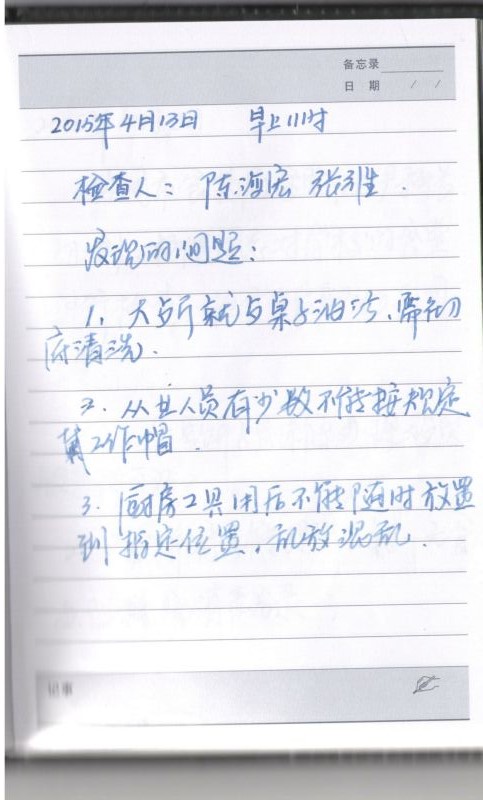 备忘录
日 期 / /
2015年4月13日 早上11时
检查人：陈海宏 张
发现的问题：
1、大厅就与桌子油污、需彻
底清洗.
2. 从业人员有少数不能按规定
戴工作帽.
3. 厨房工具用后不能随时放置
到指定位置，乱放混乱.
记事